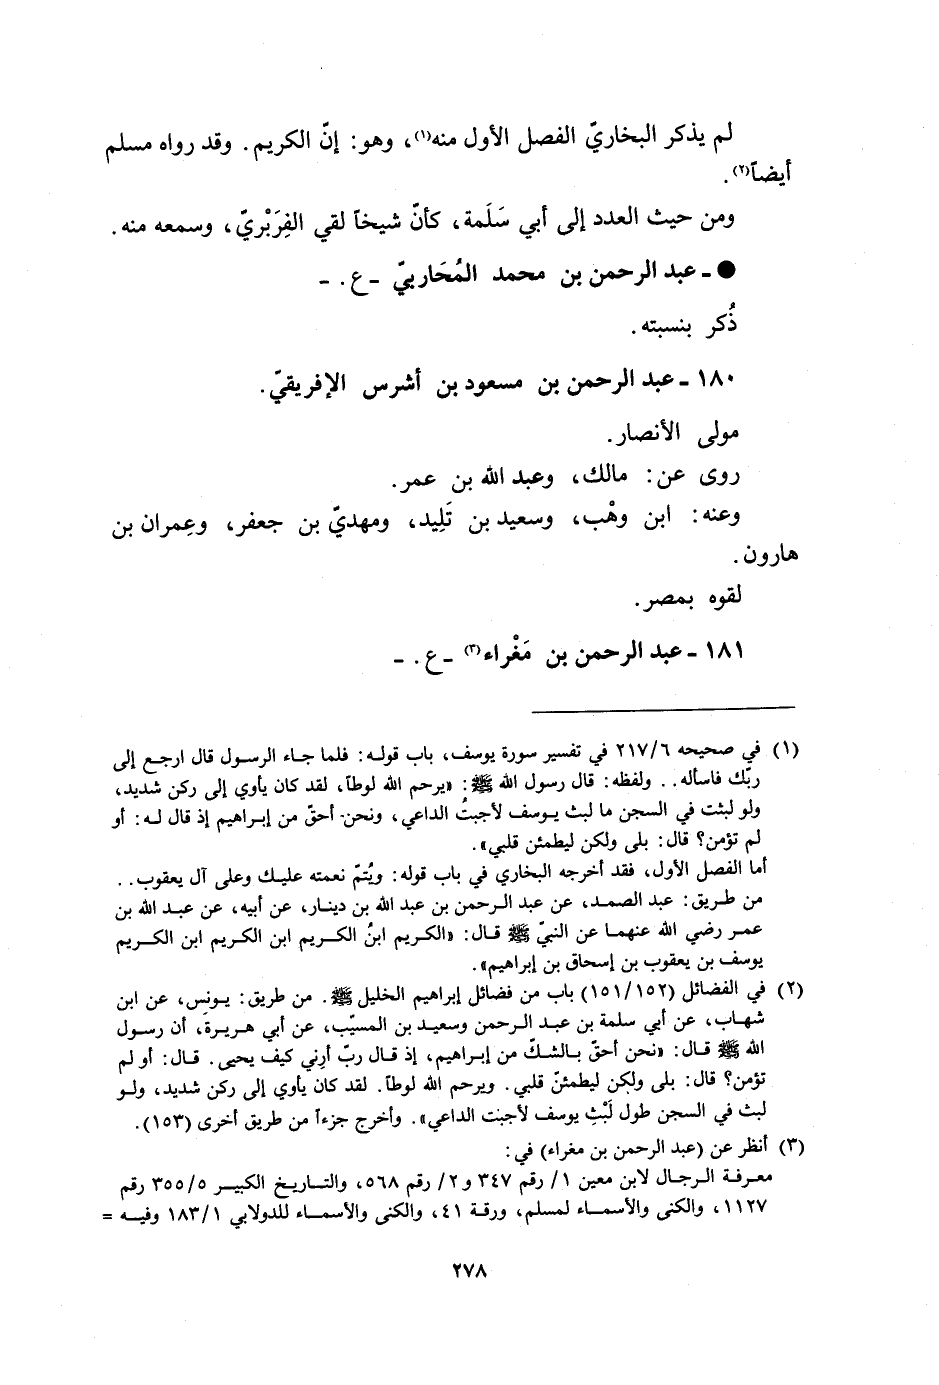 لم يذكر البخاريّ الفصل الأول منه(١)، وهو: إنّ الكريم. وقد رواه مسلم
أيضاً(٢).
ومن حيث العدد إلى أبي سَلَمة، كأنّ شيخاً لقي الفِرَبْريّ، وسمعه منه.
● ـ عبد الرحمن بن محمد المُحَاربيّ ـ ع. ـ
ذُكر بنسبته.
١٨٠ ـ عبد الرحمن بن مسعود بن أشرس الإفريقيّ.
مولى الأنصار.
روى عن: مالك، وعبد الله بن عمر.
وعنه: ابن وهْب، وسعيد بن تَلِيد، ومهديّ بن جعفر، وعِمران بن
هارون.
لقوه بمصر.
١٨١ ـ عبد الرحمن بن مَغْراء(٣) ـ ع. ـ
(١) في صحيحه ٢١٧/٦ في تفسير سورة يوسف، باب قوله: فلما جاء الرسول قال ارجع إلى
ربّك فاسأله.. ولفظه: قال رسول الله ﷺ: «يرحم الله لوطاً، لقد كان يأوي إلى ركن شديد،
ولو لبثت في السجن ما لبث يوسف لأجبتُ الداعي، ونحن أحقّ من إبراهيم إذ قال له: أو
لم تؤمن؟ قال: بلى ولكن ليطمئن قلبي».
أما الفصل الأول، فقد أخرجه البخاري في باب قوله: ويُتمّ نعمته عليك وعلى آل يعقوب..
من طريق: عبد الصمد، عن عبد الرحمن بن عبد الله بن دينار، عن أبيه، عن عبد الله بن
عمر رضي الله عنهما عن النبيّ ﷺ قال: «الكريم ابنُ الكريم ابن الكريم ابن الكريم
يوسف بن يعقوب بن إسحاق بن إبراهيم».
(٢) في الفضائل (١٥١/١٥٢) باب من فضائل إبراهيم الخليل ﷺ. من طريق: يونس، عن ابن
شهاب، عن أبي سلمة بن عبد الرحمن وسعيد بن المسيّب، عن أبي هريرة، أن رسول
الله ﷺ قال: «نحن أحقّ بالشكّ من إبراهيم، إذ قال ربّ أرِني كيف يحيى. قال: أو لم
تؤمن؟ قال: بلى ولكن ليطمئنّ قلبي. ويرحم الله لوطاً. لقد كان يأوي إلى ركن شديد، ولو
لبث في السجن طول لَبْثِ يوسف لأجبت الداعي». وأخرج جزءاً من طريق أخرى (١٥٣).
(٣) أنظر عن (عبد الرحمن بن مغراء) في:
معرفة الرجال لابن معين ١/ رقم ٣٤٧ و٢/ رقم ٥٦٨، والتاريخ الكبير ٣٥٥/٥ رقم
١١٢٧، والكنى والأسماء لمسلم، ورقة ٤١، والكنى والأسماء للدولابي ١٨٣/١ وفيه =
٢٧٨